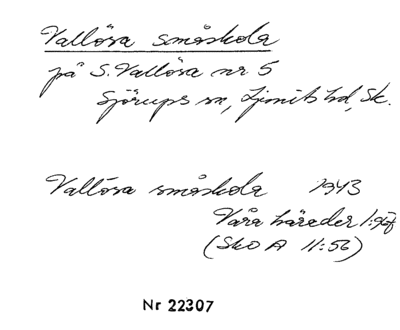 Vallösa småskola
på S. Vallösa nr 5
Sjörups sn, Ljunits hd, Sk.
Vallösa småskola 1943
Våra härader 1:
(SkO A 11:56)
Nr 22307